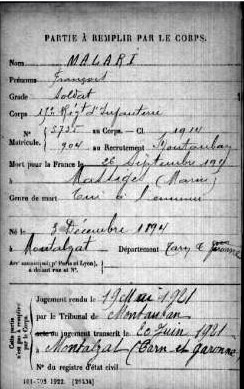 PARTIE À REMPLIR PAR LE CORPS.
Nom MALARÉ
Prénoms François
Grade Soldat
Corps Régt d'Infanterie
N° 5735 au Corps. — Cl. 1914
Matricule. 904 au Recrutement Montauban
Mort pour la France le 26 Septembre 191
à Massiges (Marne)
Genre de mort Tué à l'ennemi
Né le 3 Décembre 1894
à Montalzat Département Tarn et Garonne
Arr. municipal (pr Paris et Lyon),
à défaut rue et N°.
Cette partie
n'est pas à remplir
par le Corps.
Jugement rendu le 19 Mai 1921
par le Tribunal de Montauban
jugement transcrit le 20 Juin 1921
à Montalzat (Tarn et Garonne
N° du registre d'état civil
1922.